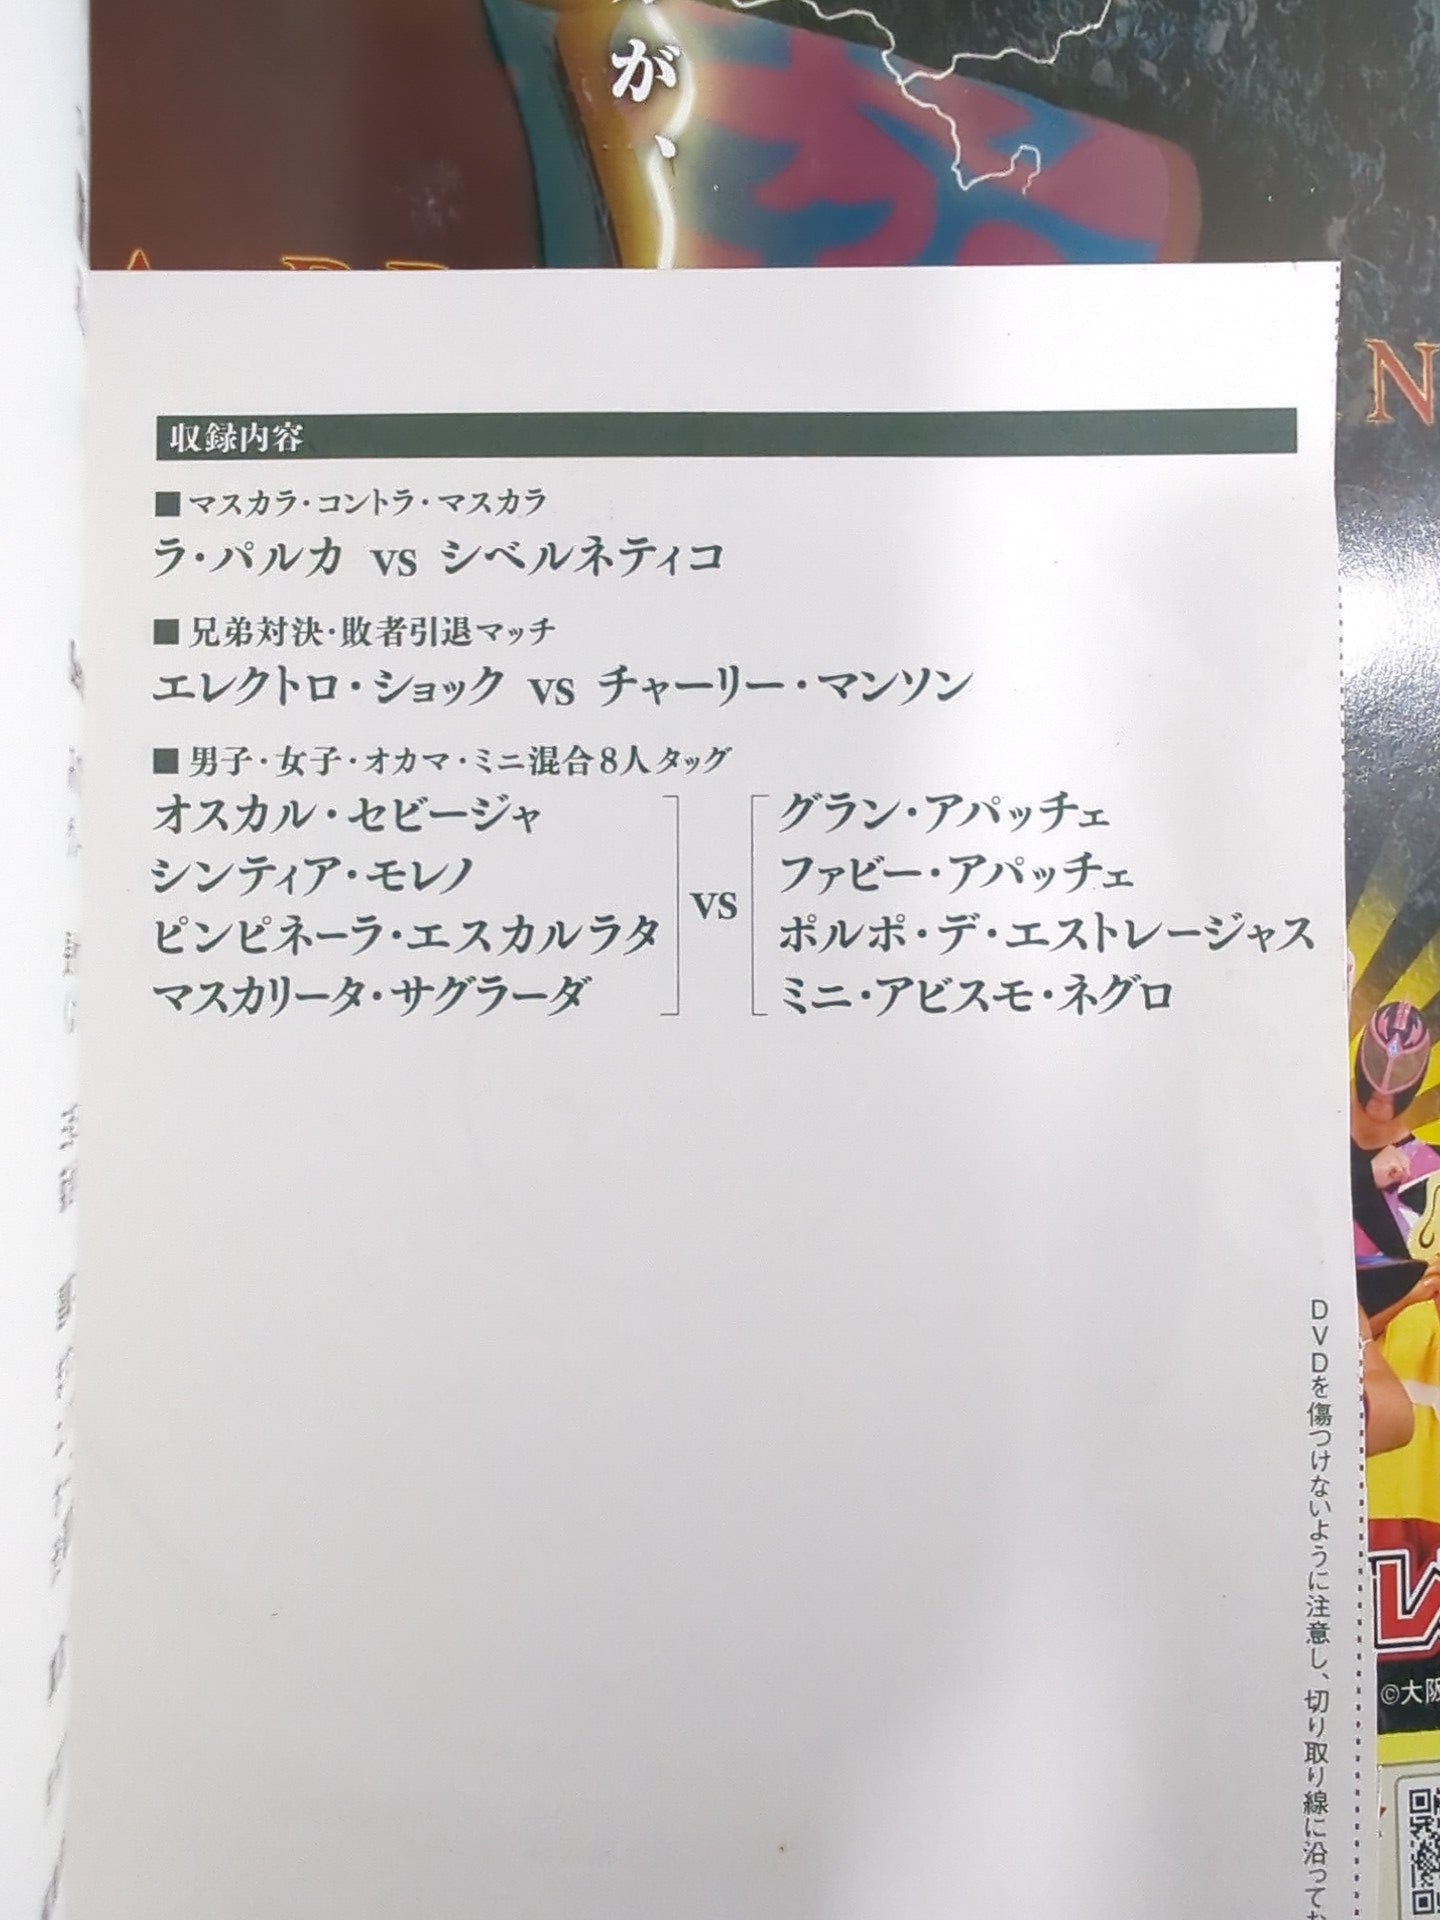 が、
収録内容
■マスカラ・コントラ・マスカラ
ラ・パルカ vs シベルネティコ
■兄弟対決・敗者引退マッチ
エレクトロ・ショック vs チャーリー・マンソン
■男子・女子・オカマ・ミニ混合8人タッグ
オスカル・セビージャ
シンティア・モレノ
ピンピネーラ・エスカルラタ
マスカリータ・サグラーダ
vs
グラン・アパッチェ
ファビー・アパッチェ
ポルポ・デ・エストレージャス
ミニ・アビスモ・ネグロ
DVDを傷つけないように注意し、切り取り線に沿って
N
©大阪